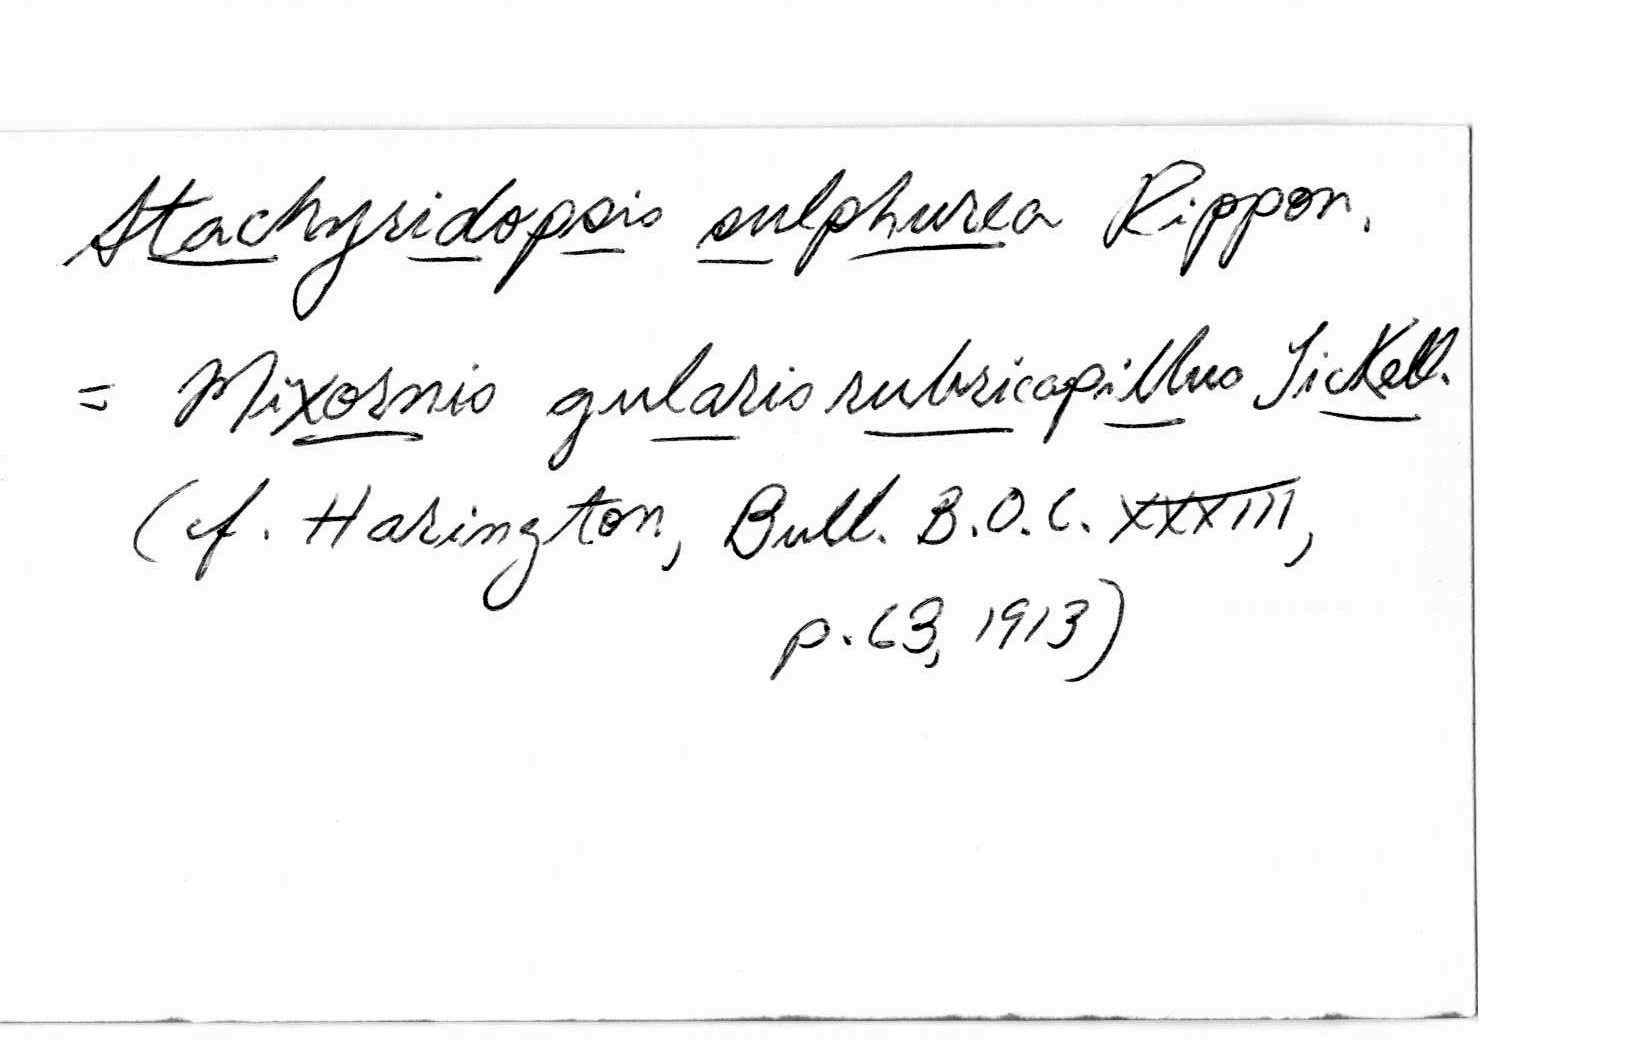 Stachyridopsis sulphurea Rippon.
= Mixornis gularis rubricapillus Tickell.
(cf. Harington, Bull. B.O.C. XXXIII,
p. 63, 1913)